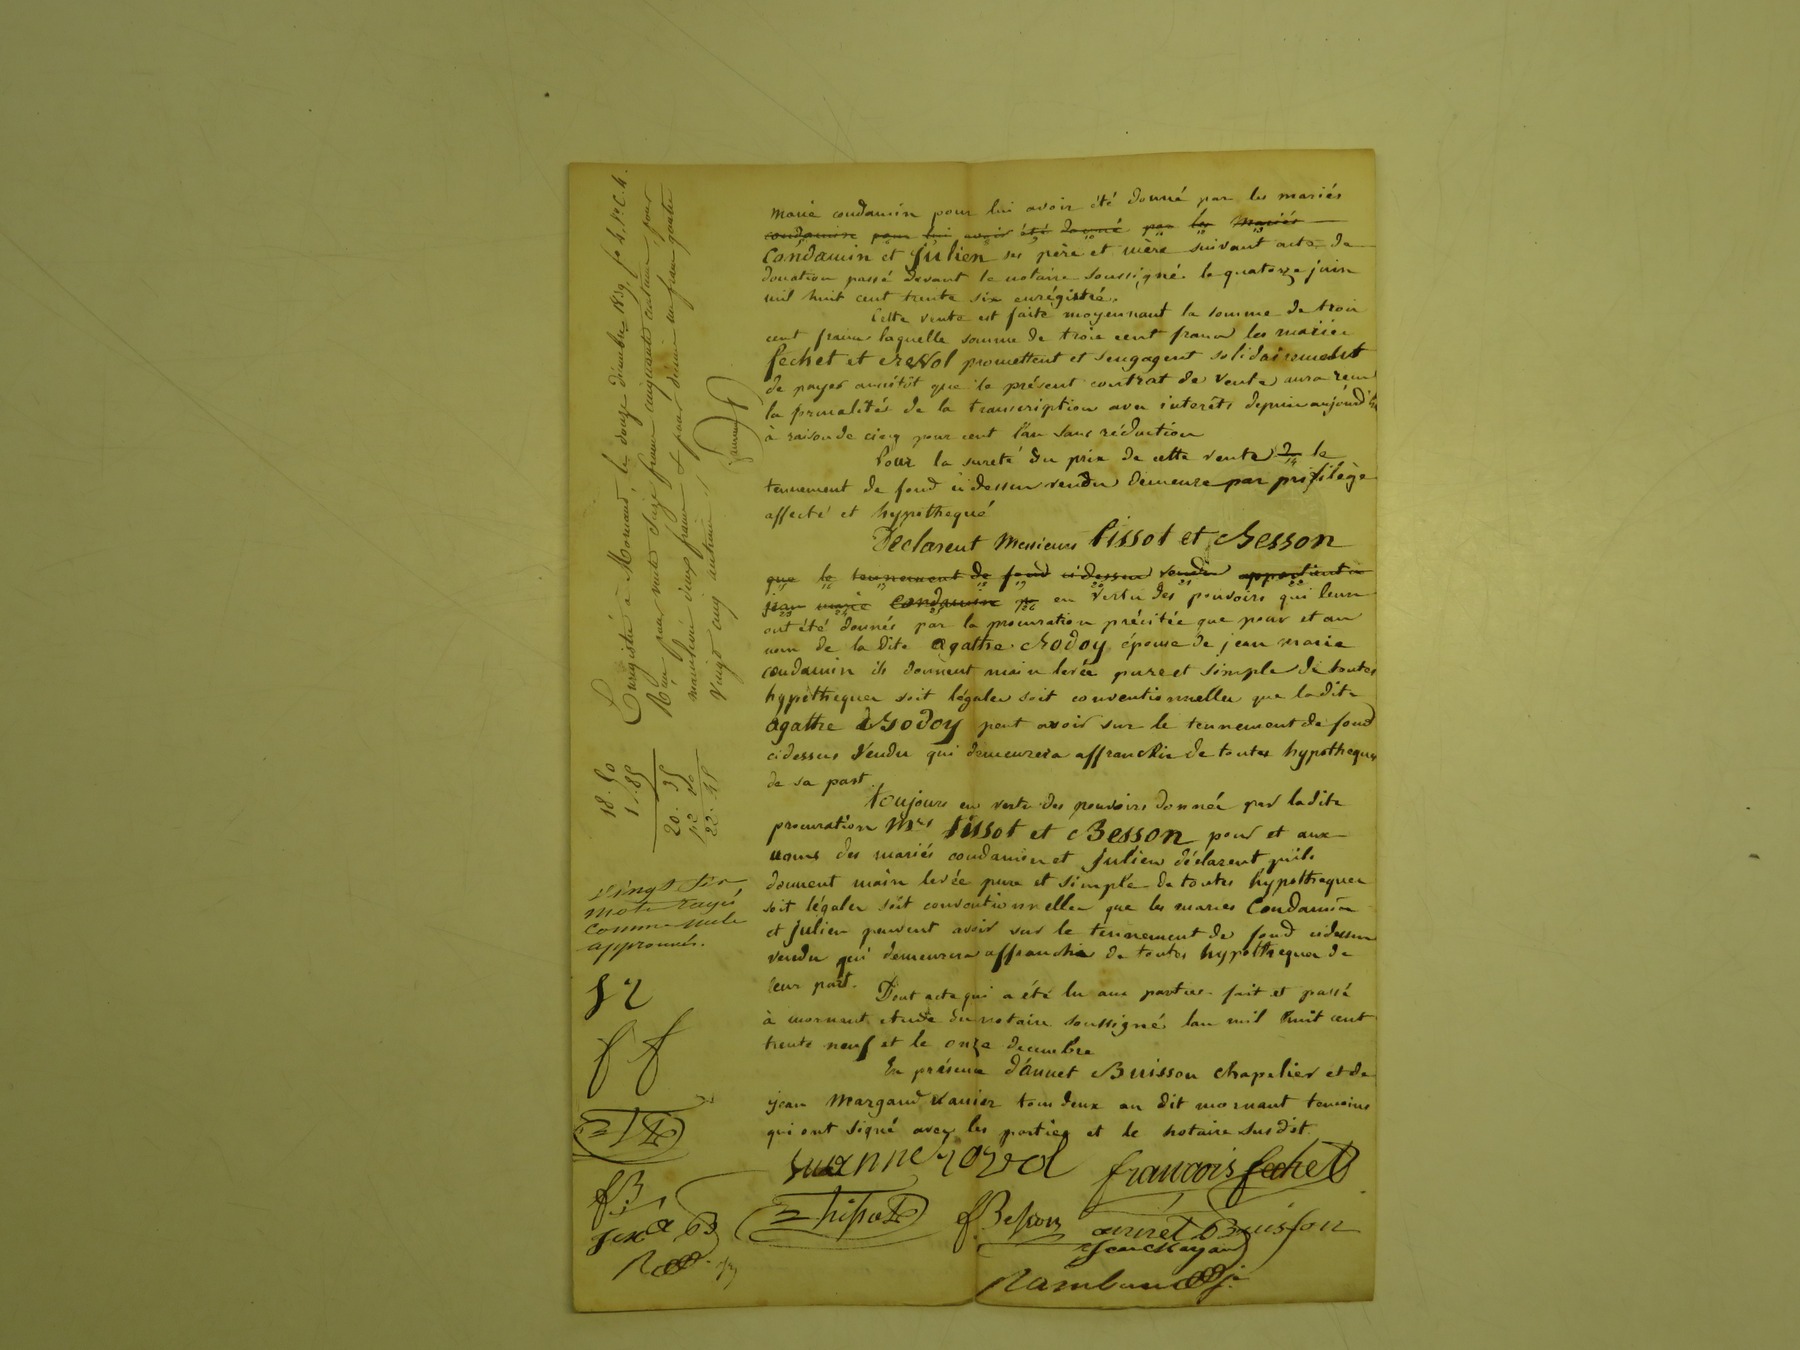 marié condamin pour lui avoir été donné par les mariés
condamin pour lui avoir été donné par les mariés
Condamin et Julien ses père et mère suivant acte de
donation passé devant le notaire soussigné le quatorze juin
mil huit cent trente six enrégistré.
Cette vente est faite moyennant la somme de trois
cent francs laquelle somme de trois cent francs les mariés
fechet et promettent et s'engagent solidairement
de payer aussitôt que le présent contrat de vente aura reçu
la formalités de la transcription avec interêts depuis aujourd'hui
à raison de cinq pour cent l'an sans réduction
Pour la sureté du prix de cette vente le
tennement de fond ci dessus vendu demeure par privilège
affecté et hypothequé
Déclarent Messieurs tissot et Besson
que le tennement de fond cidessus vendu appartient a
jean marie Condamin en vertu des pouvoirs qui leurs
ont été donnés par la procuration précitée que pour et au
nom de la dite agathe Godoy épouse de jean marie
condamin ils donnent main levée pure et simple de toutes
hypotheques soit légales soit conventionnelles que la dite
agathe Godoy peut avoir sur le tennement de fond
cidessus vendu qui demeurera affranchie de toutes hypotheques
de sa part.
toujours en vertu des pouvoirs donnés par ladite
procuration Mrs tissot et Besson pour et aux
noms des mariés condamin et Julien déclarent qu'ils
donnent main levée pure et simple de toutes hypotheques
soit légales soit conventionnelles que les maries Condamin
et Julien peuvent avoir sur le tennement de fond cidessus
vendu qui demeurera affranchie de toutes hypotheques de
leur part.
Dont acte qui a été lu aux parties. fait et passé
à mornant etude du notaire soussigné lan mil huit cent
trente neuf et le onze decembre
En présence d'annet Buisson chapelier et de
jean Margand tous deux au dit mornant temoins
qui ont signé avec les parties et le notaire susdit.
francois fechet
tissot
Besson
annet Buisson
Enregistré à Mornant, le douze décembre 1839, fo 4. Ro C. 4.
Reçu pour vente seize francs cinquante centimes, pour
mainlevée deux francs et pour décime un franc quatre
vingt cinq centimes
18. 50
1. 85
20. 35
22. 45
Vingt six
mots rayés
comme nuls
approuvés.